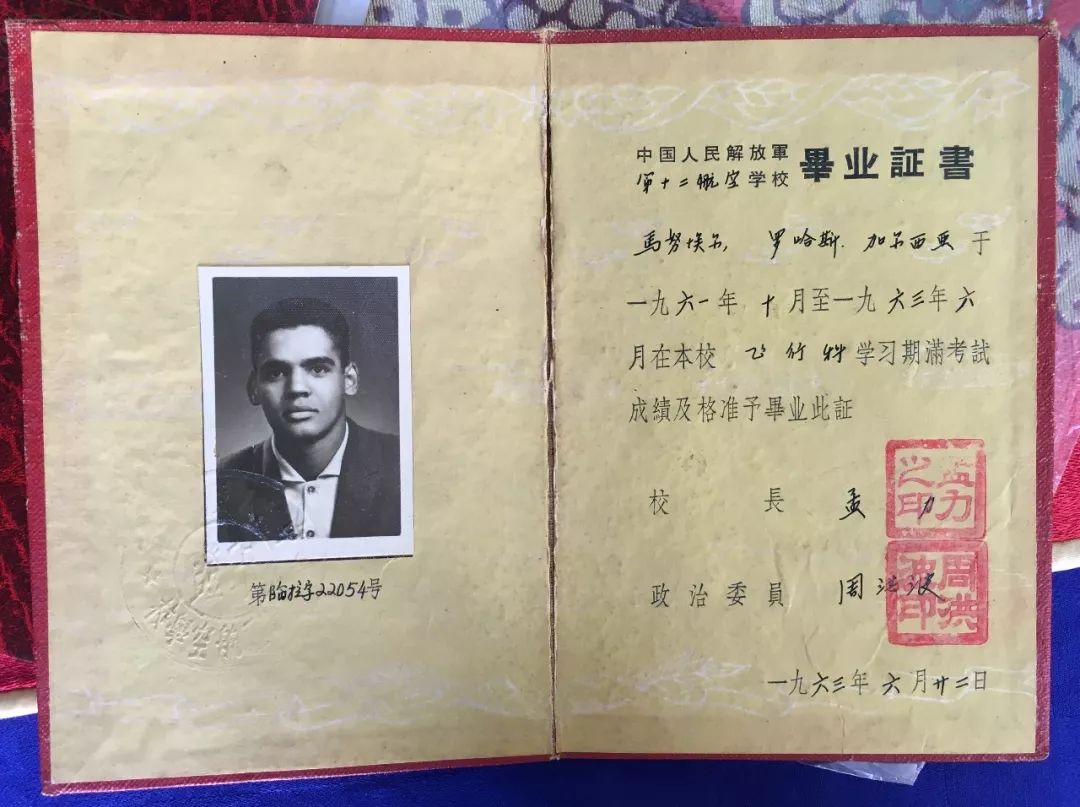 第临拉字22054号
中国人民解放軍
第十二航空学校
畢业証書
馬努埃尔，罗哈斯．加尔西亚于
一九六一年十月至一九六三年六
月在本校飞行科学习期滿考試
成績及格准予畢业此証
校長 孟力
孟力之印
政治委員 周洪波
周洪波印
一九六三年六月廿二日
航空學校